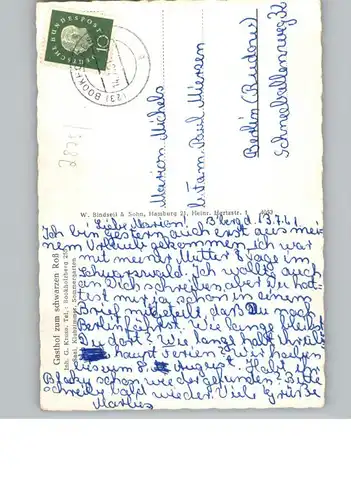 DEUTSCHE BUNDESPOST
10
(23) BOOKH
Marion Michels
b. Fam. Paul Miersen
Berlin (Rudow)
Schneeballenweg 32
W. Bindseil & Sohn, Hamburg 21, Heinr. Hertzstr.
Gasthof zum schwarzen Roß
Inh. G. Kruse, Tel.: Bookholzberg
Saal, Klubzimmer, Sommergarten
Liebe Marion! B'berg d. 13.7.61
Ich bin gestern auch erst aus mei-
nem Urlaub gekommen, ich war
mit meiner Mutter 8 Tage im
Schwarzwald. Ich wollte auch
an Dich schreiben aber Du hat-
test mir ja schon in einem
Brief mitgeteilt, daß Du nach
Berlin fährst. Wie lange bleibst
Du dort? Wie lange habt ihr über-
haupt Ferien? Wir haben
bis zum 8. August. Habt ihr
Blacky schon wiedergefunden? Bitte
schreibe bald wieder. Viele Grüße
Marlies